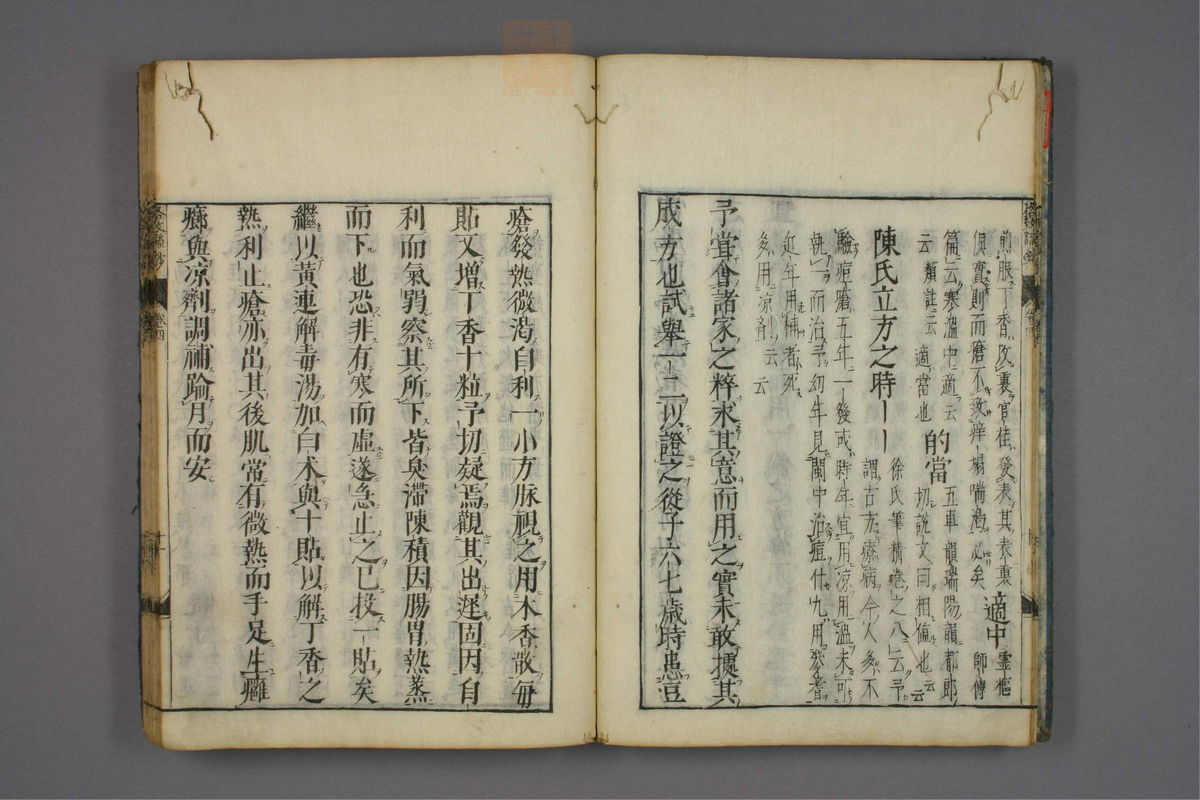 前服丁香攻裏官桂發表其表裏
俱實則而瘡不致痒塌喘渇必矣
適中
靈樞
師傳
篇云寒温中適云
云類註云適當也
的當
五車韻瑞陽韻都郎
切說文曰相値也云云
陳氏立方之時丨丨
徐氏筆精卷之八云予
謂古方療病今人多不
驗痘瘡五年一後或時年宜用凉用温未可
執一而治予幼年見閩中治痘什九用參耆
近年用補者死
多用凉剤云云
予甞會諸家之粹求其意而用之實未敢據其
成方也試舉一二以證之從子六七歳時患豆
瘡發熱微渇自利一小方脉視之用木香散毎
貼又増丁香十粒予切疑焉觀其出遲固因自
利而氣弱察其所下皆臭滯陳積因腸胃熱蒸
而下也恐非有寒而虚遂急止之已投一貼矣
繼以黃連解毒湯加白术與十貼以解丁香之
熱利止瘡亦出其後肌常有微熱而手足生癰
癤與凉劑調補踰月而安
卷四